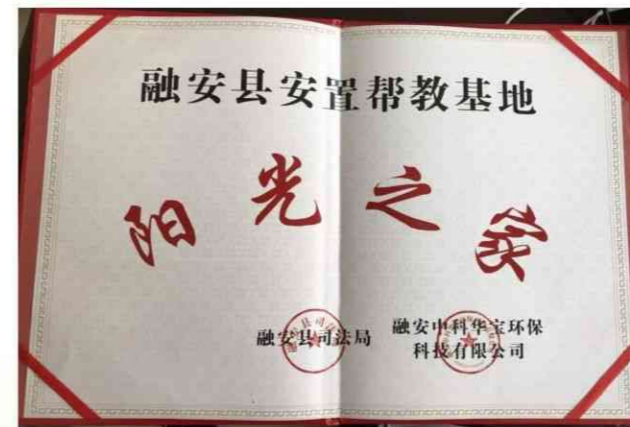 融安县安置帮教基地
阳光之家
融安县司法局
融安中科华宝环保
科技有限公司